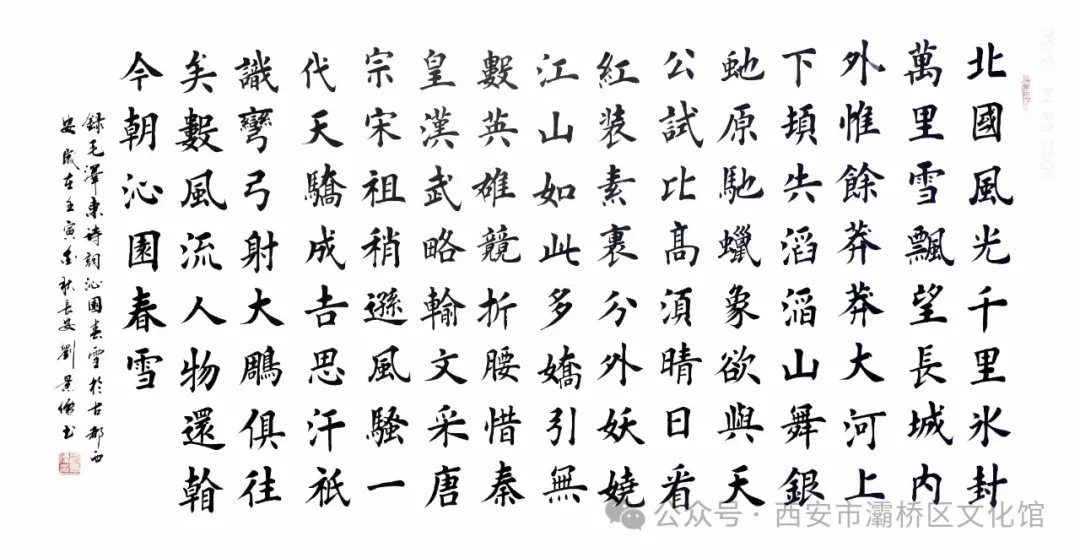 北國風光千里氷封
萬里雪飄望長城内
外惟餘莽莽大河上
下頓失滔滔山舞銀
虵原馳蠟象欲與天
公試比高須晴日看
紅装素裹分外妖嬈
江山如此多嬌引無
數英雄競折腰惜秦
皇漢武略輸文采唐
宗宋祖稍遜風騷一
代天驕成吉思汗祇
識彎弓射大鵰俱往
矣數風流人物還翰
今朝沁園春雪
録毛澤東诗詞沁園春雪於古都西
安歲在壬寅金秋長安劉景書
公众号·西安市灞桥区文化馆